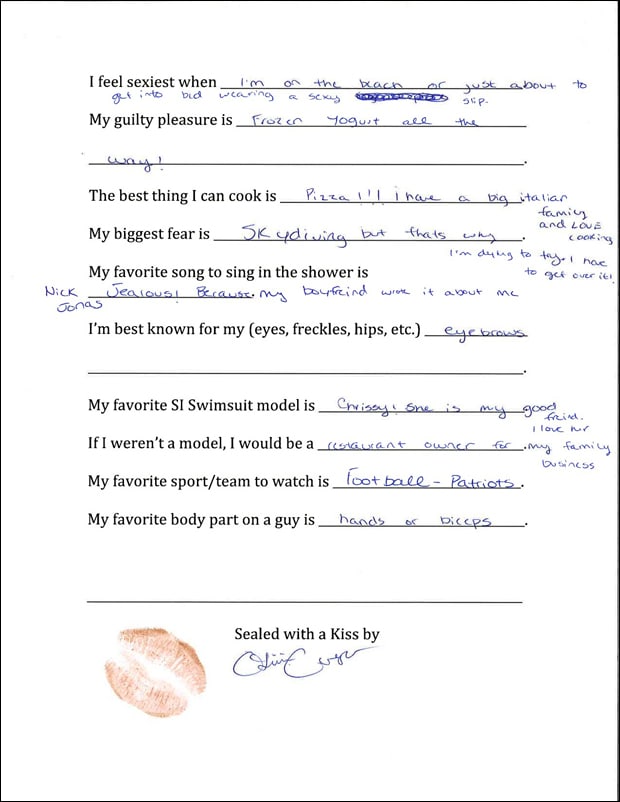 I feel sexiest when I'm on the beach or just about to
get into bed wearing a sexy slip.
My guilty pleasure is Frozen Yogurt all the
way!.
The best thing I can cook is Pizza!!! i have a big italian
family
and LOVE
cooking
My biggest fear is SKydiving but thats why.
I'm dying to try. I have
to get over it!
My favorite song to sing in the shower is
Nick
Jonas
Jealous! Because my boyfreind wrote it about me
I'm best known for my (eyes, freckles, hips, etc.) eyebrows
.
My favorite SI Swimsuit model is Chrissy! she is my good
freind.
I love her
If I weren't a model, I would be a restaurant owner for my family
business
My favorite sport/team to watch is Football - Patriots.
My favorite body part on a guy is hands or biceps.
Sealed with a Kiss by